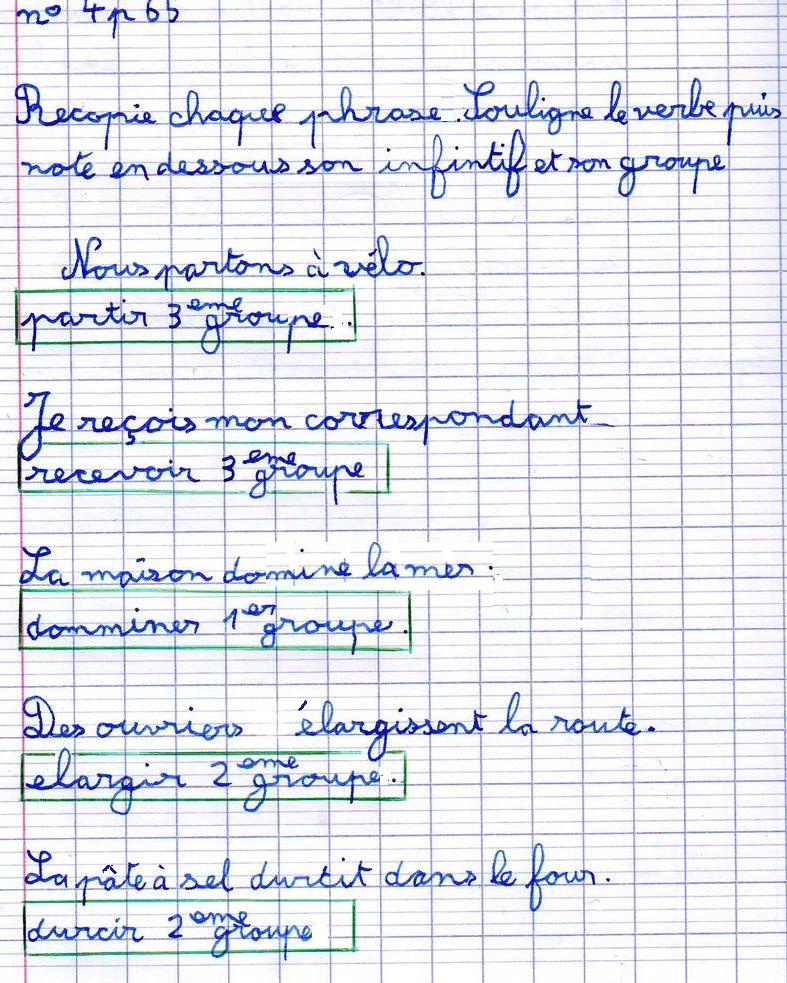 n° 4 p 65
Recopie chaque phrase. Souligne le verbe puis
note en dessous son infintif et son groupe
Nous partons à vélo.
partir 3eme groupe.
Je reçois mon correspondant
recevoir 3eme groupe
La maison domine la mer.
domminer 1er groupe.
Des ouvriers élargissent la route.
elargir 2eme groupe.
La pâte à sel durcit dans le four.
durcir 2eme groupe